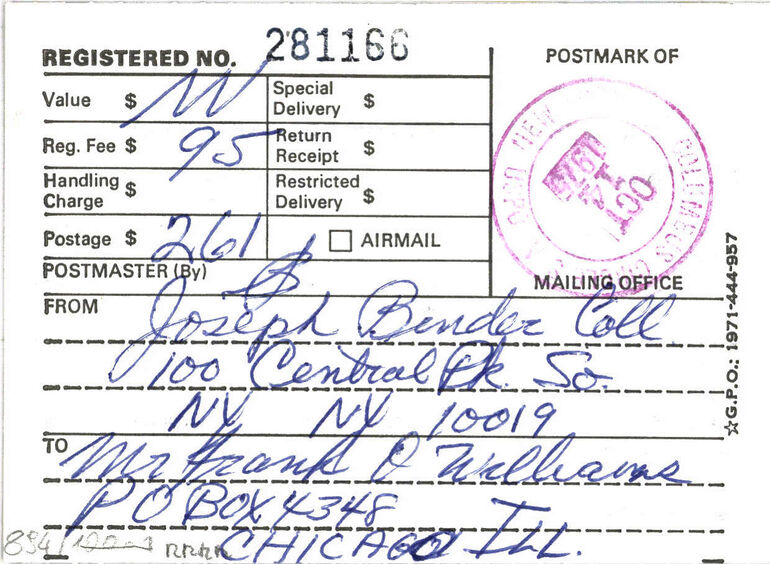 REGISTERED NO. 281166
POSTMARK OF
Value $
Special Delivery $
Reg. Fee $ 95
Return Receipt $
Handling Charge $
Restricted Delivery $
Postage $ 261
AIRMAIL
POSTMASTER (By)
MAILING OFFICE
NEW
COLUMBUS
OCT
FROM Joseph Binder Coll.
100 Central Pk. So.
NY NY 10019
TO Mr Frank O Williams
PO BOX 4348
CHICAGO ILL.
☆G.P.O.: 1971-444-957